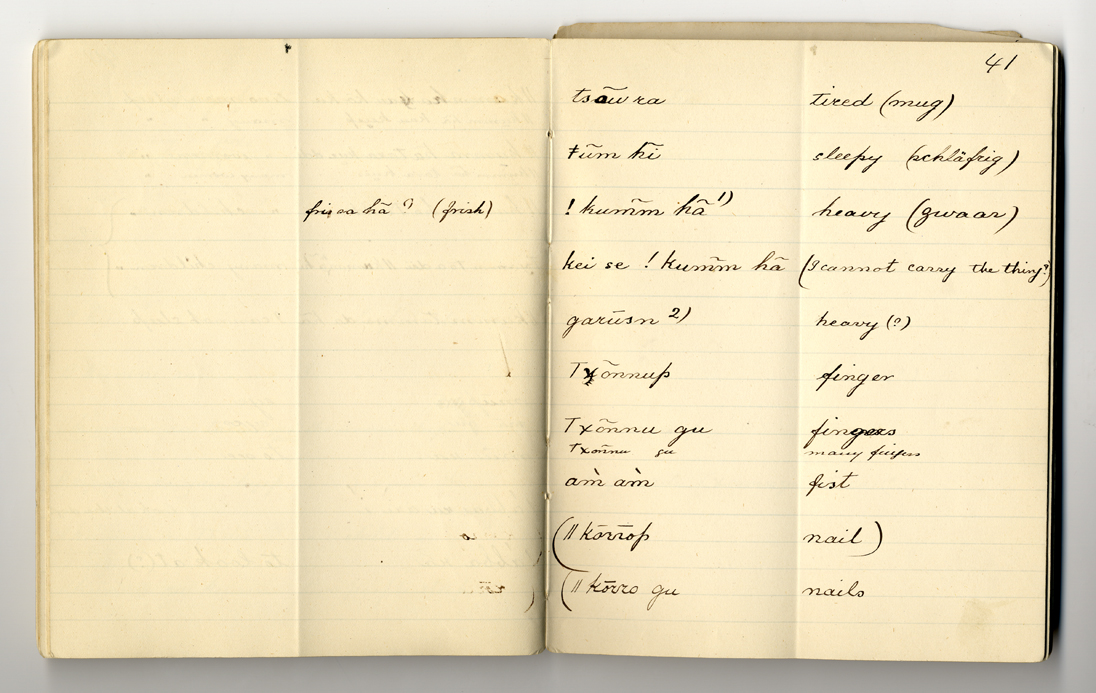 frisa hā ? (frish)
41
tsāura tired (mug)
ǂūm k̄i sleepy (schläfrig)
! kum̄m hā 1) heavy (gwaar)
kei se ! kum̄m hā (I cannot carry the thing?)
garūsn 2) heavy (?)
Txōnnup finger
Txōnnu gu fingers
Txōnnu gu many fingers
am̀ am̀ fist
(ǁ kōrrop nail)
(ǁ kōrro gu nails